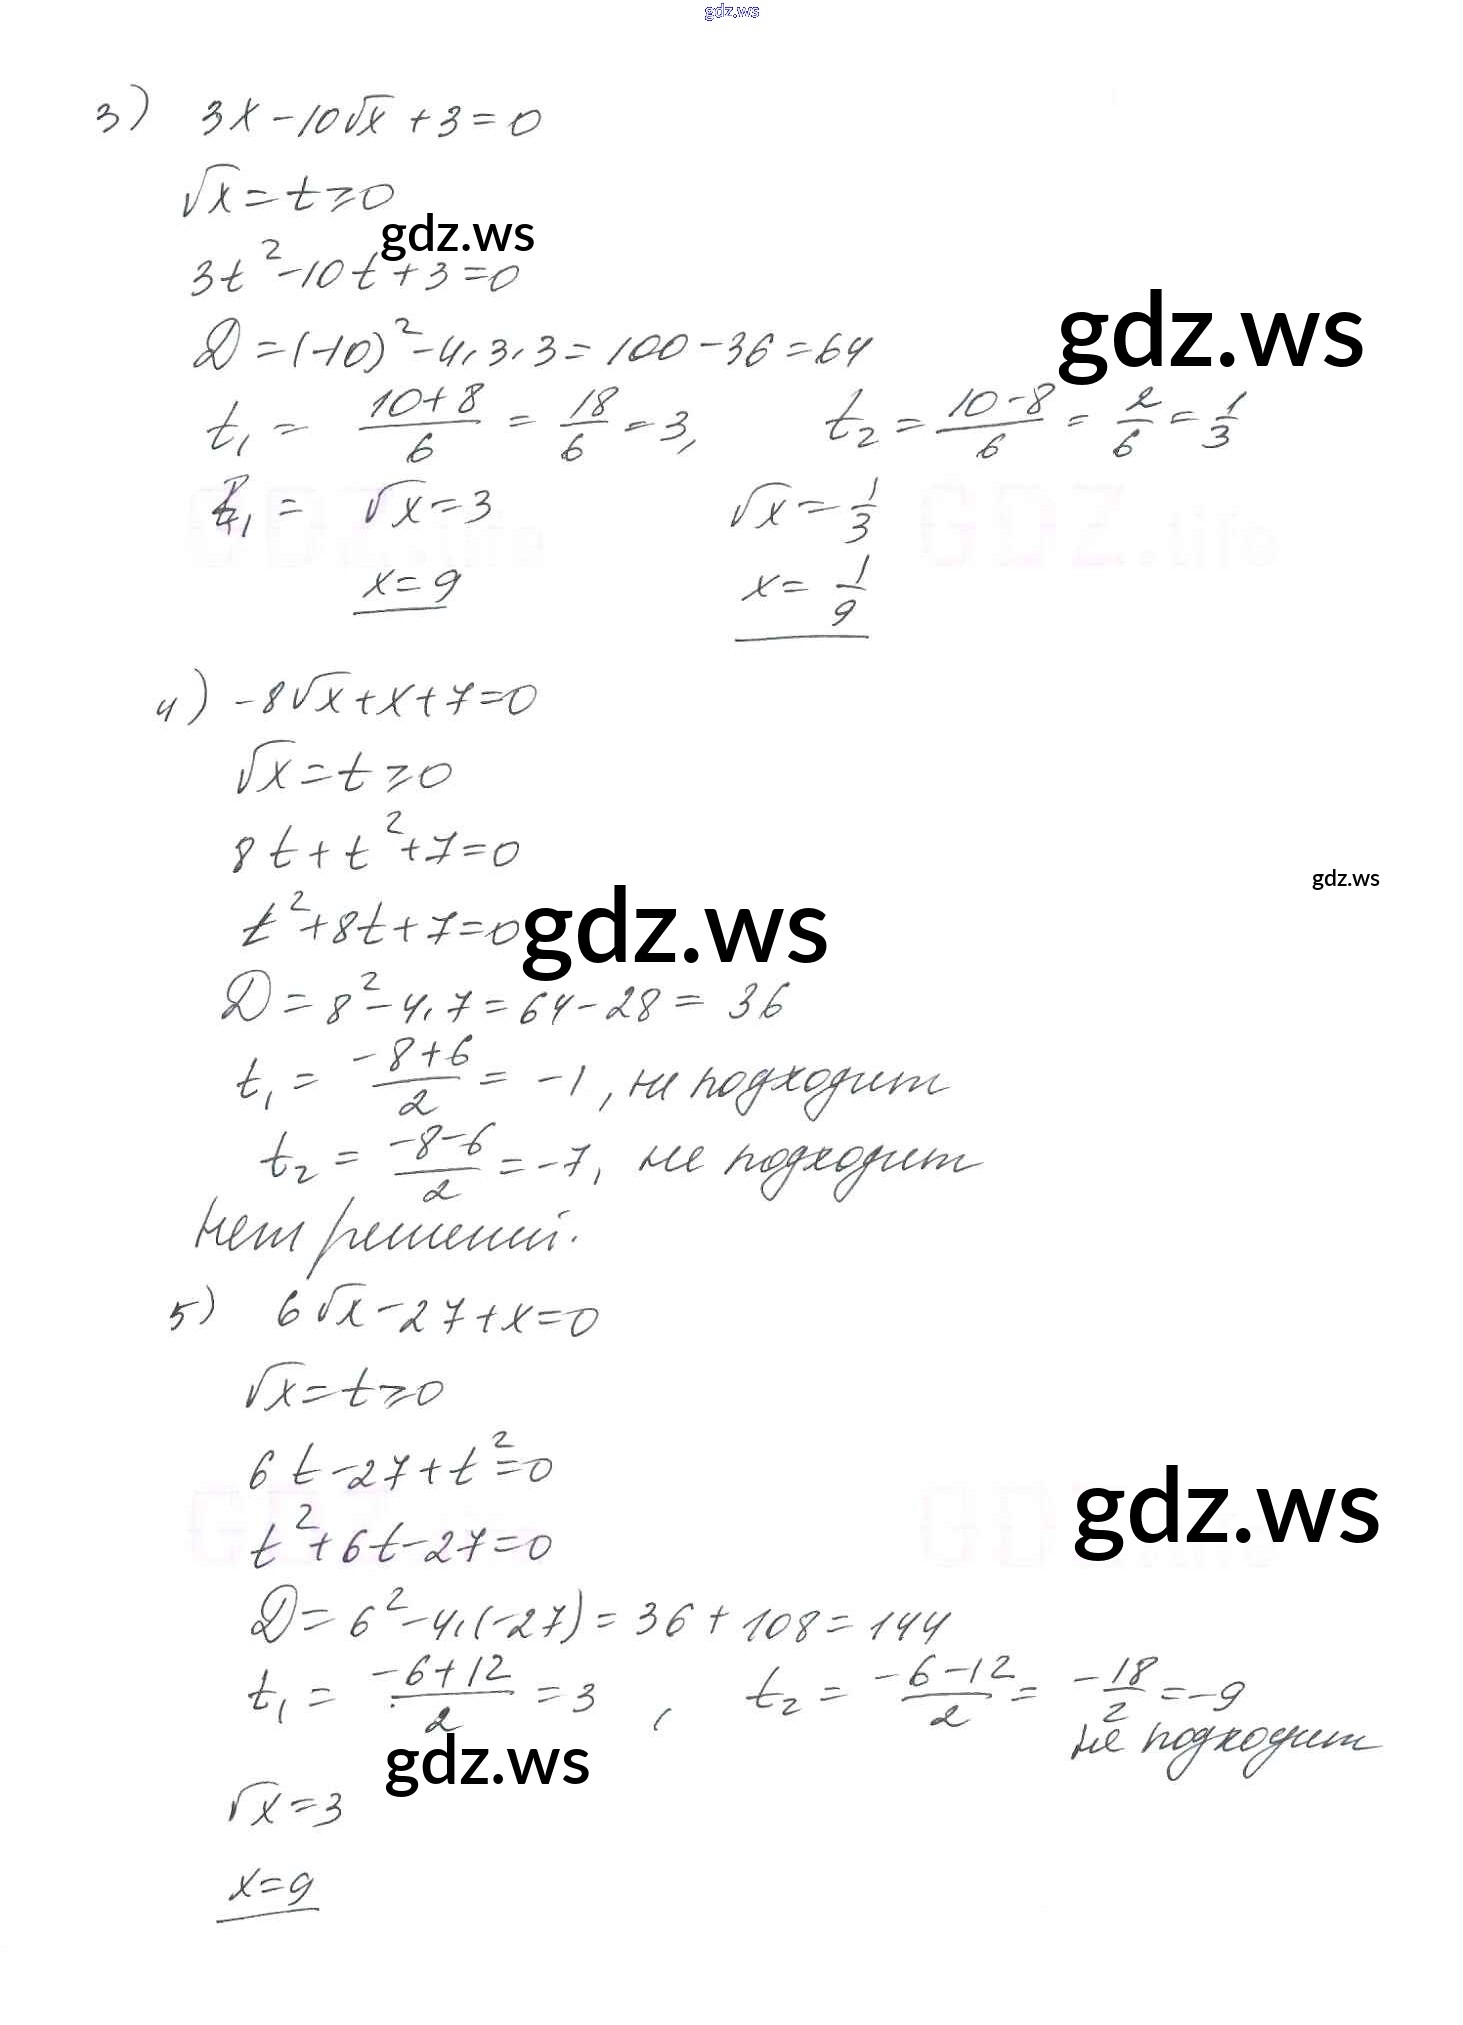 gdz.ws
3) 3x - 10√x + 3 = 0
√x = t ⩾ 0
gdz.ws
3t² - 10t + 3 = 0
gdz.ws
D = (-10)² - 4·3·3 = 100 - 36 = 64
t₁ = (10+8)/6 = 18/6 = 3, t₂ = (10-8)/6 = 2/6 = 1/3
√x = 3 √x = 1/3
GDZ.life GDZ.life
x = 9 x = 1/9
4) -8√x + x + 7 = 0
√x = t ⩾ 0
8t + t² + 7 = 0
gdz.ws
t² + 8t + 7 = 0
gdz.ws
D = 8² - 4·7 = 64 - 28 = 36
t₁ = (-8+6)/2 = -1, не подходит
t₂ = (-8-6)/2 = -7, не подходит
нет решений.
5) 6√x - 27 + x = 0
√x = t ⩾ 0
6t - 27 + t² = 0
gdz.ws
t² + 6t - 27 = 0
D = 6² - 4·(-27) = 36 + 108 = 144
t₁ = (-6+12)/2 = 3, t₂ = (-6-12)/2 = -18/2 = -9
не подходит
gdz.ws
√x = 3
x = 9